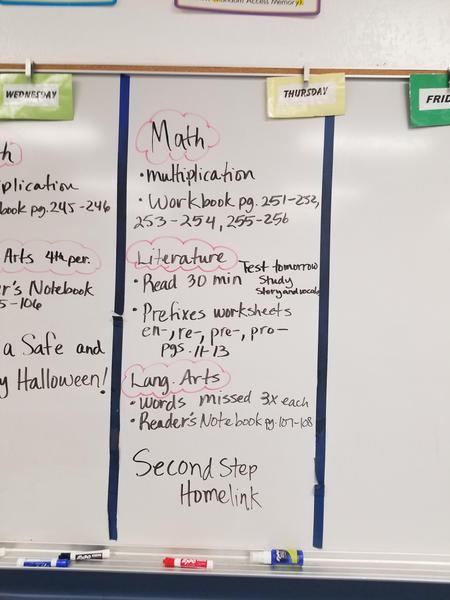 Random Access Memory).
WEDNESDAY
THURSDAY
plication
book pg. 245-246
Arts 4th per.
r's Notebook
5-106
a Safe and
y Halloween!
Math
• multiplication
• Workbook pg. 251-252,
253-254, 255-256
Literature Test tomorrow
• Read 30 min Study
Story and vocab
• Prefixes worksheets
en-, re-, pre-, pro-
pgs. 11-13
Lang. Arts
• Words missed 3x each
• Reader's Notebook pg. 107-108
Second Step
Homelink
FRI